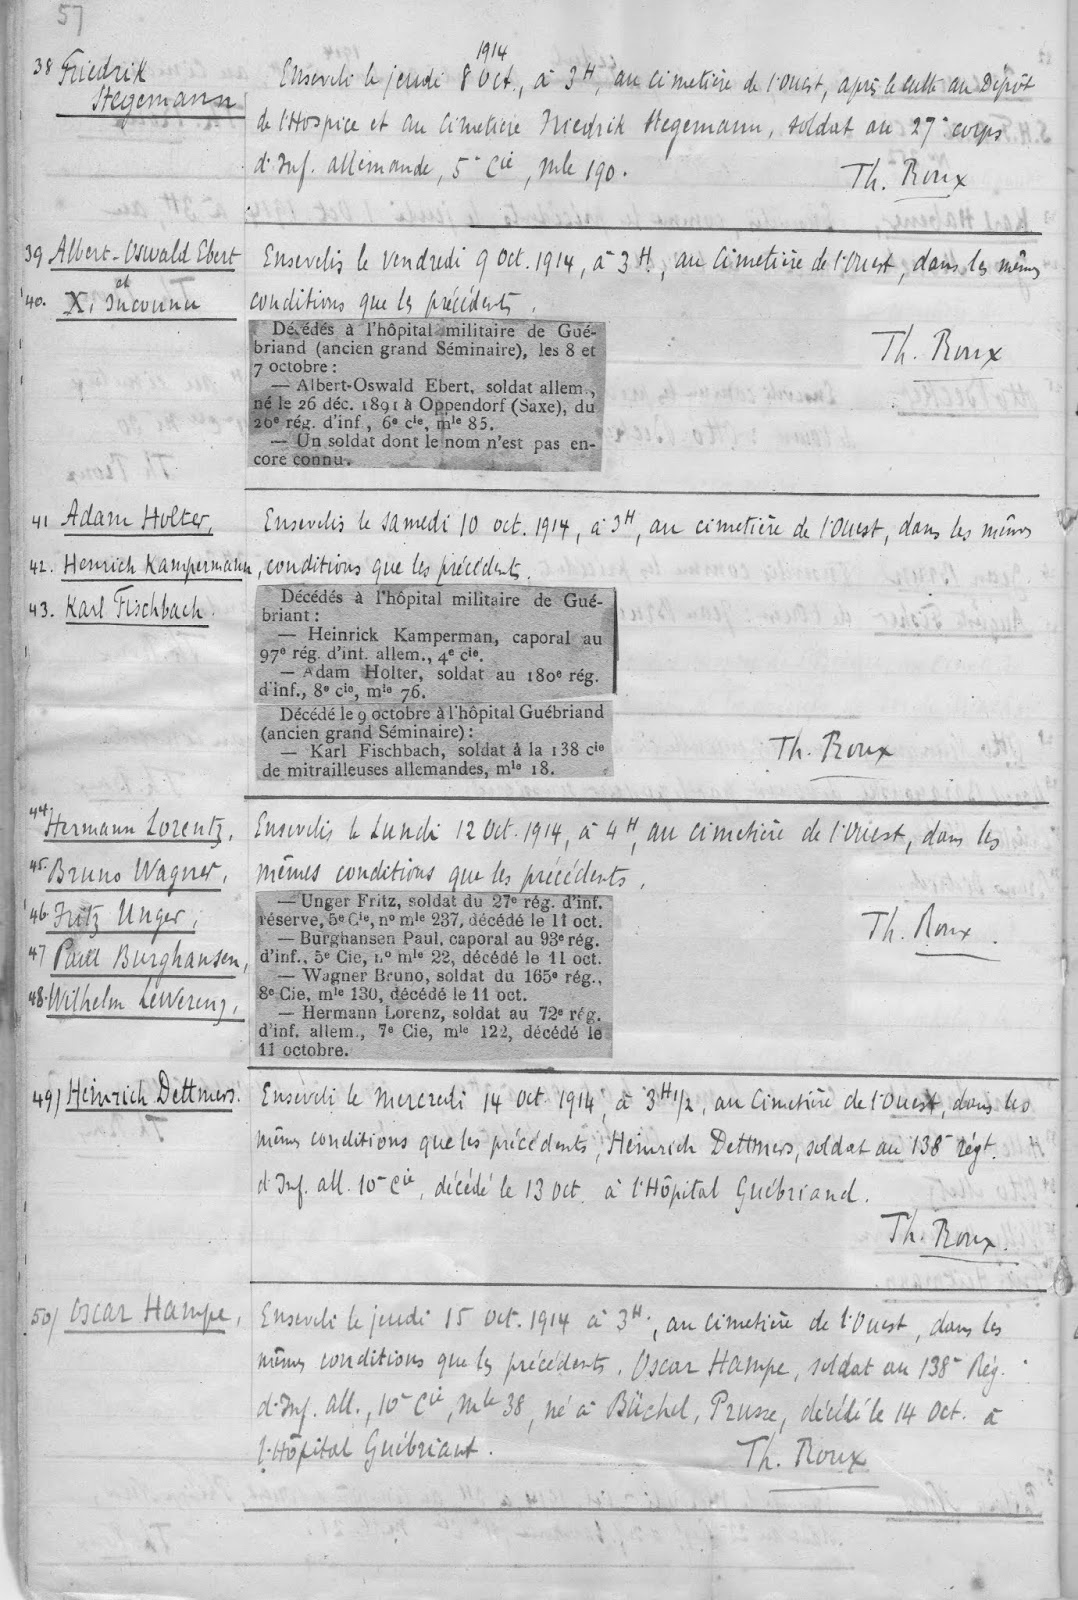 57
38 Friedrik
Stegemann
Enseveli le jeudi 8 Oct. 1914, à 3H, au cimetière de l'Ouest, après le culte au Dépôt
de l'Hospice et au cimetière Friedrik Stegemann, soldat au 27e corps
d'Inf. allemande, 5e Cie, Mle 190.
Th. Roux
39 Albert-Oswald Ebert
et
40. X, Inconnu
Ensevelis le vendredi 9 oct. 1914, à 3H, au Cimetière de l'Ouest, dans les mêmes
conditions que les précédents.
Décédés à l'hôpital militaire de Gué-
briand (ancien grand Séminaire), les 8 et
7 octobre :
— Albert-Oswald Ebert, soldat allem.,
né le 26 déc. 1891 à Oppendorf (Saxe), du
26e rég. d'inf., 6e cie, mle 85.
— Un soldat dont le nom n'est pas en-
core connu.
Th. Roux
41 Adam Holter,
42. Henrich Kampermann,
43. Karl Fischbach.
Ensevelis le samedi 10 oct. 1914, à 3H, au cimetière de l'Ouest, dans les mêmes
conditions que les précédents.
Décédés à l'hôpital militaire de Gué-
briant :
— Heinrick Kamperman, caporal au
97e rég. d'inf. allem., 4e cie.
— Adam Holter, soldat au 180e rég.
d'inf., 8e cie, mle 76.
Décédé le 9 octobre à l'hôpital Guébriand
(ancien grand Séminaire) :
— Karl Fischbach, soldat à la 138 cie
de mitrailleuses allemandes, mle 18.
Th. Roux
44 Hermann Lorentz,
45. Bruno Wagner,
46. Fritz Unger,
47 Paul Burghansen,
48. Wilhelm Lewerenz,
Ensevelis le Lundi 12 Oct. 1914, à 4H, au cimetière de l'Ouest, dans les
mêmes conditions que les précédents.
— Unger Fritz, soldat du 27e rég. d'inf.
réserve, 5e Cie, no mle 237, décédé le 11 oct.
— Burghansen Paul, caporal au 93e rég.
d'inf., 5e Cie, no mle 22, décédé le 11 oct.
— Wagner Bruno, soldat du 165e rég.,
8e Cie, mle 130, décédé le 11 oct.
— Hermann Lorenz, soldat au 72e rég.
d'inf. allem., 7e Cie, mle 122, décédé le
11 octobre.
Th. Roux.
49) Heinrich Dettmers.
Enseveli le mercredi 14 oct 1914, à 3H 1/2, au Cimetière de l'Ouest, dans les
mêmes conditions que les précédents, Heinrich Dettmers, soldat au 138e régt.
d'Inf. all. 10e Cie, décédé le 13 oct. à l'Hôpital Guébriand.
Th. Roux.
50) Oscar Hampe,
Enseveli le jeudi 15 oct. 1914 à 3H., au cimetière de l'Ouest, dans les
mêmes conditions que les précédents. Oscar Hampe, soldat au 138e Rég.
d'Inf. all., 10e Cie, Mle 38, né à Büchel, Prusse, décédé le 14 Oct. à
l'Hôpital Guébriant.
Th. Roux